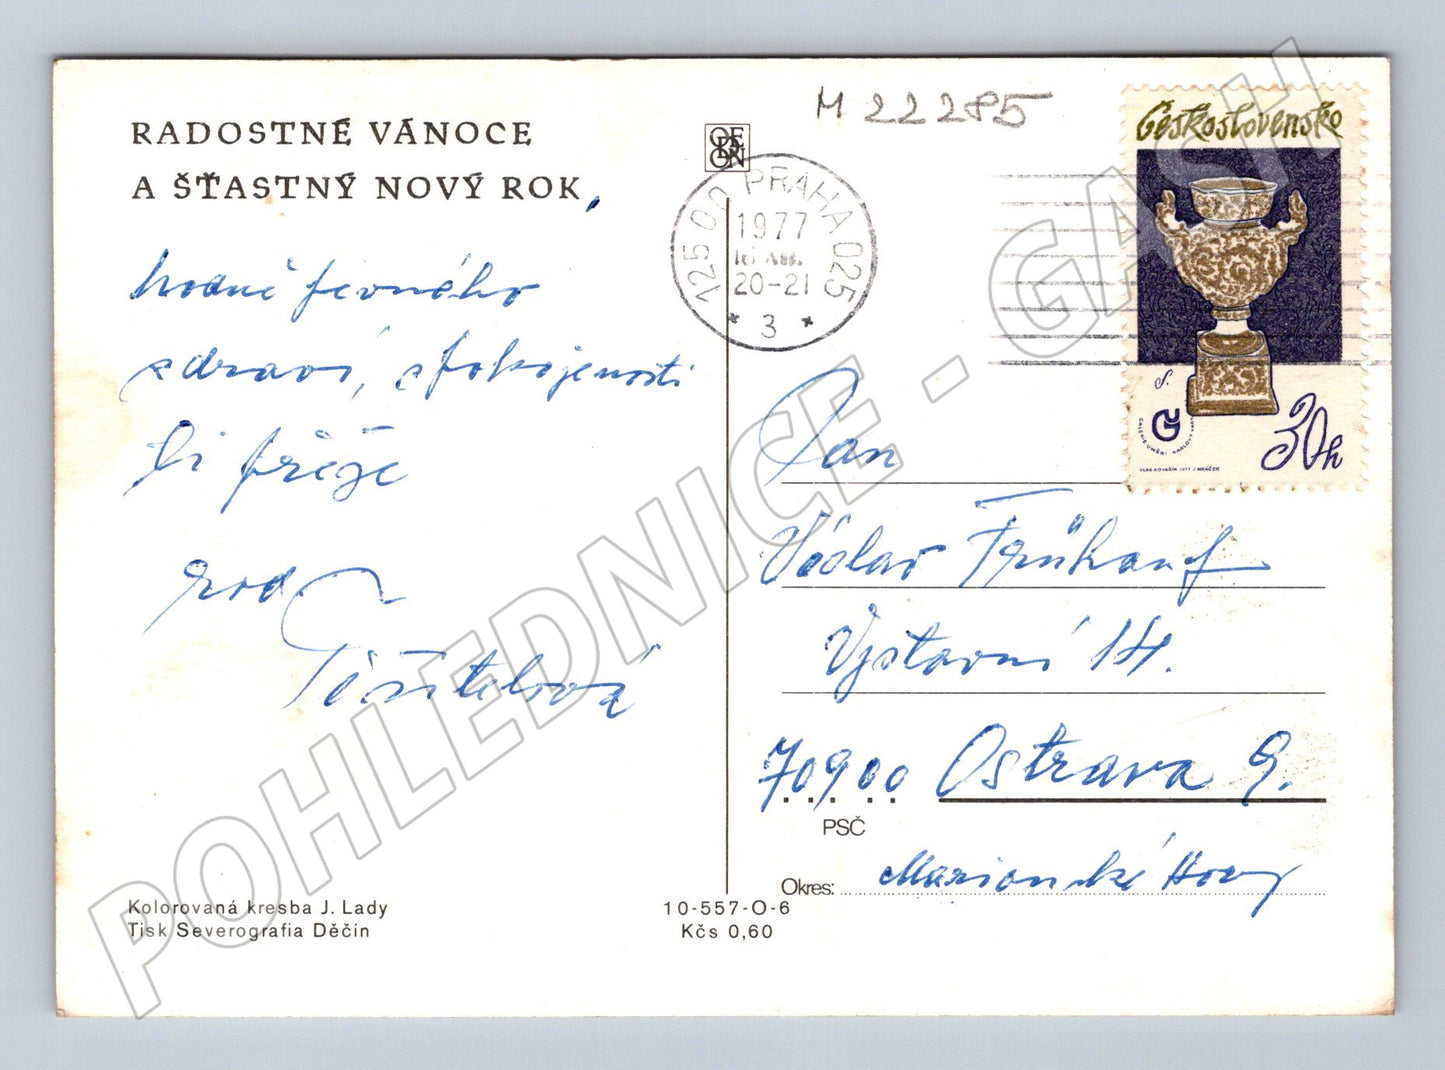 RADOSTNÉ VÁNOCE
A ŠŤASTNÝ NOVÝ ROK,
hodně pevného
zdraví, spokojenosti
Ti přeje
rod.
Těšitelová
Kolorovaná kresba J. Lady
Tisk Severografia Děčín
10-557-O-6
Kčs 0,60
ODEON
M 22285
125 00 PRAHA 025
1977
20-21
* 3 *
Československo
30h
GALERIE UMĚNÍ KARLOVY VARY
VLAD. KOVÁŘÍK 1977 J. MRÁČEK
Pan
Václav Frühauf
Výstavní 14.
709 00 Ostrava 9.
PSČ
Okres: Marianské Hory
POHLEDNICE - GASH